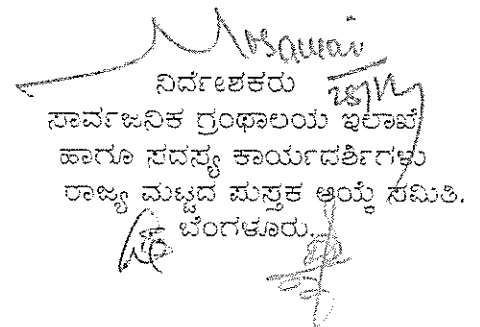 ನಿರ್ದೇಶಕರು
ಸಾರ್ವಜನಿಕ ಗ್ರಂಥಾಲಯ ಇಲಾಖೆ
ಹಾಗೂ ಸದಸ್ಯ ಕಾರ್ಯದರ್ಶಿಗಳು
ರಾಜ್ಯ ಮಟ್ಟದ ಪುಸ್ತಕ ಆಯ್ಕೆ ಸಮಿತಿ.
ಬೆಂಗಳೂರು.